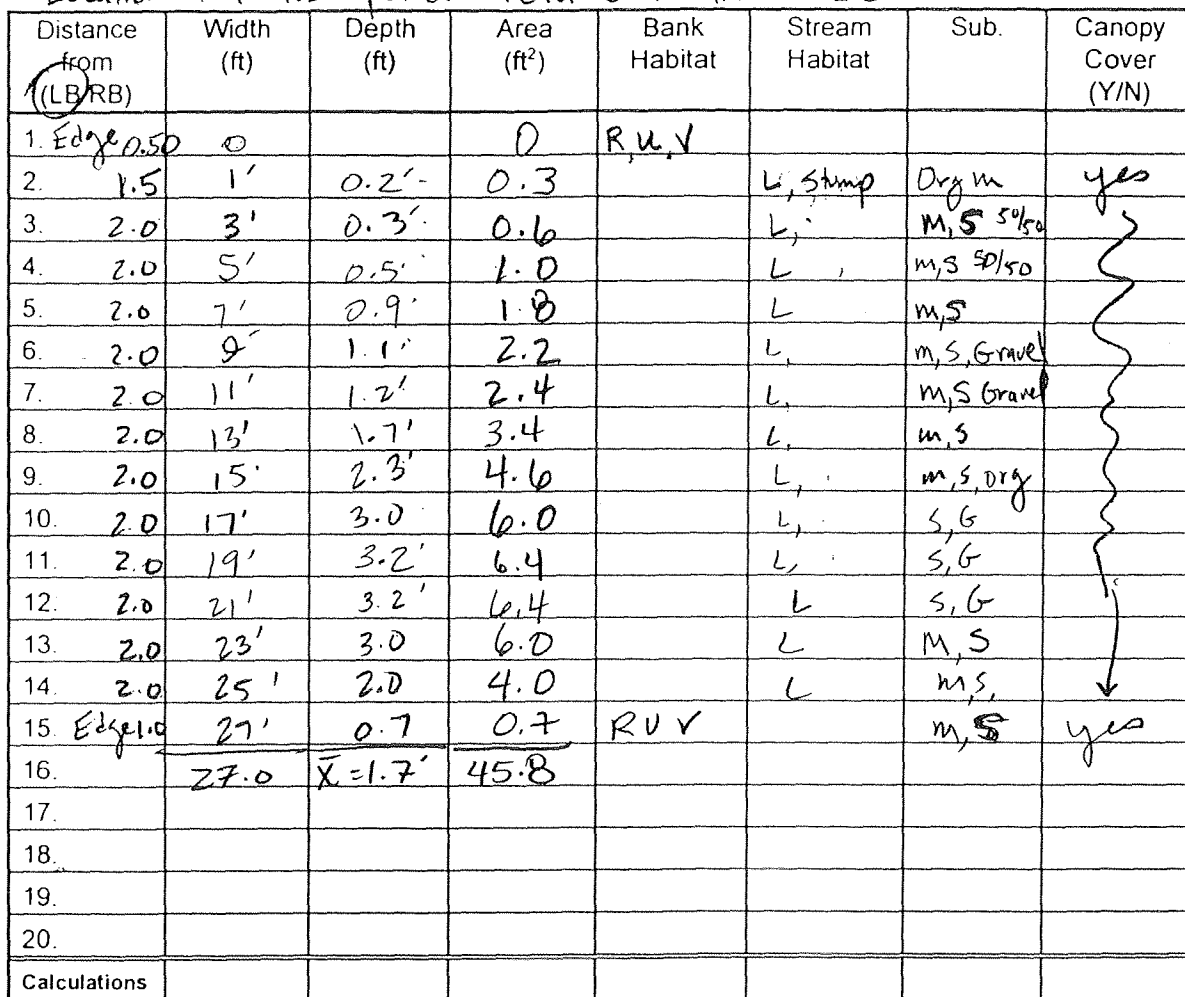 Distance from (LB/RB) Width (ft) Depth (ft) Area (ft²) Bank Habitat Stream Habitat Sub. Canopy Cover (Y/N)
1. Edge 0.50 0 0 R, U, V
2. 1.5 1' 0.2' 0.3 L, Stump Org m yes
3. 2.0 3' 0.3' 0.6 L, M, S 50/50
4. 2.0 5' 0.5' 1.0 L, m, S 50/50
5. 2.0 7' 0.9' 1.8 L m, S
6. 2.0 9' 1.1' 2.2 L, m, S, Gravel
7. 2.0 11' 1.2' 2.4 L, m, S Gravel
8. 2.0 13' 1.7' 3.4 L, m, S
9. 2.0 15' 2.3' 4.6 L, m, S, org
10. 2.0 17' 3.0 6.0 L, S, G
11. 2.0 19' 3.2' 6.4 L, S, G
12. 2.0 21' 3.2' 6.4 L S, G
13. 2.0 23' 3.0 6.0 L M, S
14. 2.0 25' 2.0 4.0 L m, S,
15. Edge 1.0 27' 0.7 0.7 R U V m, S yes
16. 27.0 X̄ = 1.7' 45.8
17.
18.
19.
20.
Calculations